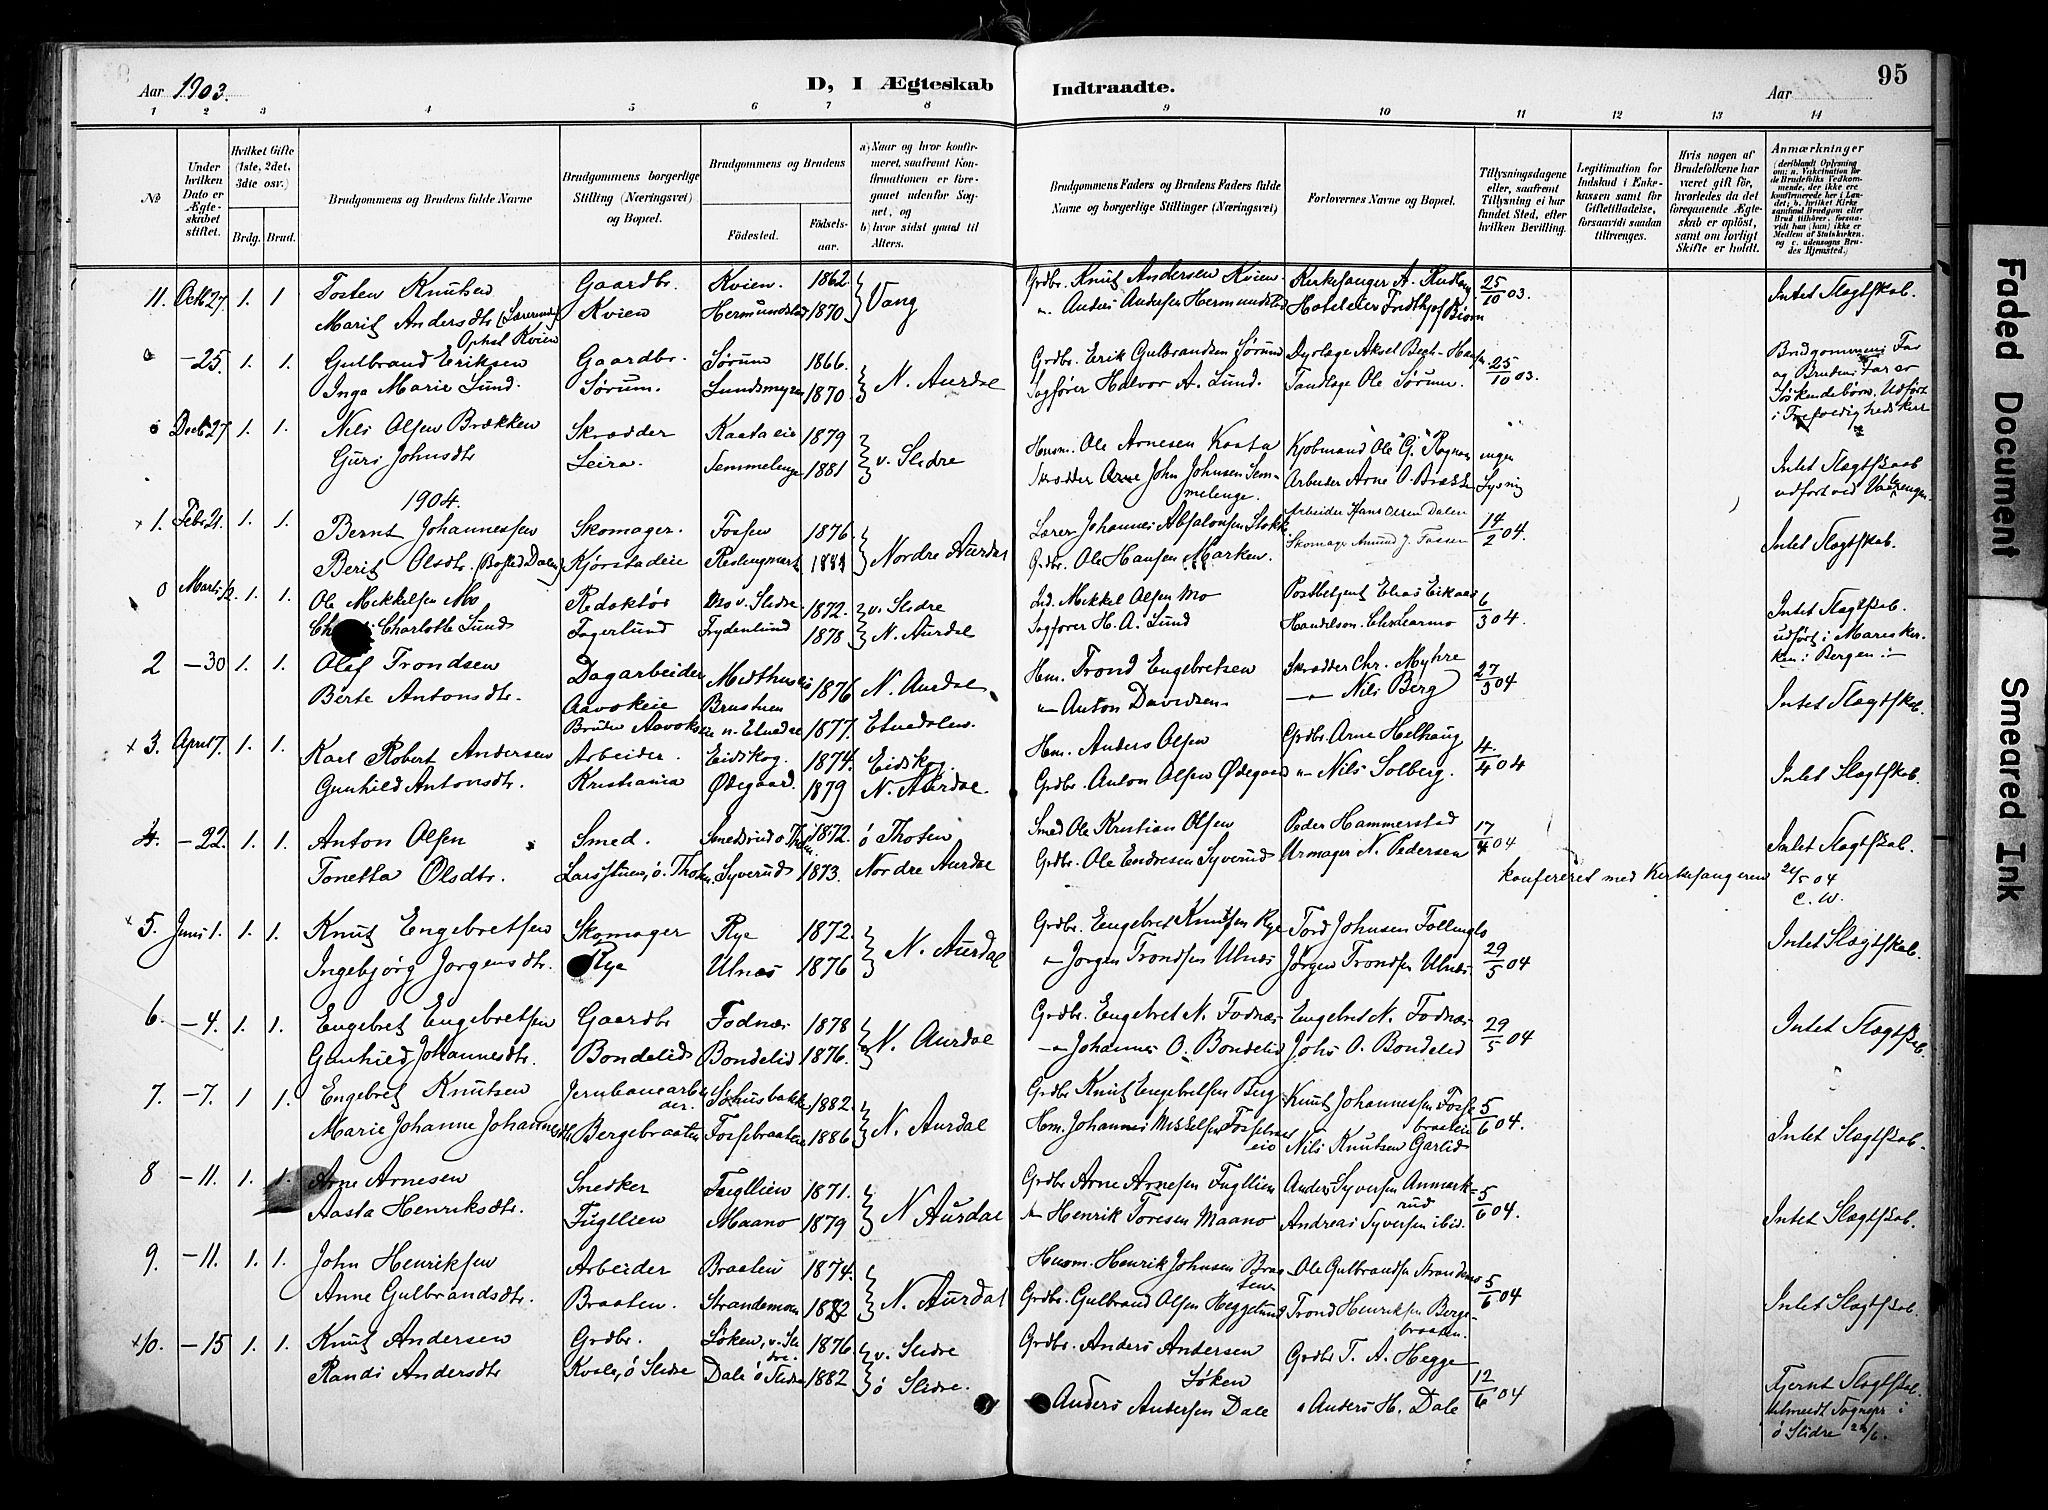 Aar 1903.
D, I Ægteskab Indtraadte.
Aar
95
1 2 3 4 5 6 7 8 9 10 11 12 13 14
No
Under hvilken Dato er Ægteskabet stiftet.
Hvilket Gifte (1ste, 2det, 3die osv.)
Brdg. Brud.
Brudgommens og Brudens fulde Navne
Brudgommens borgerlige Stilling (Næringsvei) og Bopæl.
Brudgommens og Brudens
Födested. Födselsaar.
a) Naar og hvor konfirmeret, saafremt Konfirmationen er foregaaet udenfor Sognet, og
b) hvor sidst gaaet til Alters.
Brudgommens Faders og Brudens Faders fulde Navne og borgerlige Stillinger (Næringsvei)
Forlovernes Navne og Bopæl.
Tillysningsdagene eller, saafremt Tillysning ei har fundet Sted, efter hvilken Bevilling.
Legitimation for Indskud i Enkekassen samt for Giftetilladelse, forsaavidt saadan tiltrænges.
Hvis nogen af Brudefolkene har været gift för, hvorledes da det foregaaende Ægteskab er oplöst, samt om lovligt Skifte er holdt.
Anmærkninger
(deriblandt Oplysning om: a. Vakcination for de Brudefolks Vedkommende, der ikke ere konfirmerede her i Landet; b. hvilket Kirkesamfund Brudgom eller Brud tilhörer, forsaavidt han (hun) ikke er Medlem af Statskirken, og c. udensogns Brudes Hjemsted.)
11. Octb 27. 1. 1 Tosten Knutsen Gaardbr. Kvien. 1862 Vang Grdbr. Knut Andersen Kvien. Kirkesanger A. Rudberg 25/10 03. Intet Slægtskab.
Marit Andersdtr (Lærerinde) Kvien Hermundstad 1870 " Anders Andersen Hermundstad Hoteleier Fridthjof Biørn
Ophol Kvien
0 -25. 1. 1. Gulbrand Eriksen Gaardbr. Sørum 1866. N. Aurdal Grdbr. Erik Gulbrandsen Sørum Dyrlæge Aksel Bech-Hansen 25/10 03. Brudgommens Far
Inga Marie Lund. Sørum. Lundsmyren 1870 Sagfører Halvor A. Lund. Tandlæge Ole Sørum. og Brudens Far er
Søskendebørn. Udført
i Trefoldighedskirk
0 Decb 27. 1. 1. Nils Olsen Brækken Skrædder Kaataeie 1879 v. Slidre Husm. Ole Arnesen Kaata Kjøbmand Ole G. Rogne ingen Intet Slægtskab
Guri Johnsdtr Leira. Semmelenge 1881 Skrædder Arne John Johnsen Semmelenge. Arbeider Arne O. Brække Lysning udfort ved
1904.
x 1. Febr 21. 1. 1. Bernt Johannessen Skomager. Fossen 1876 Nordre Aurdal Lærer Johannes Absalonsen Stokk Arbeider Hans Olsen Dalen 14/2 04. Intet Slægtskab.
Berit Olsdtr. (Bosted Dalen) Kjørstadeie 1881 Grdbr. Ole Hansen Marken. Skomager Amund J. Fossen
0 Marts 12. 1. 1. Ole Mikkelsen Mo Redaktør Mo v. Slidre 1872. v. Slidre Ind. Mikkel Olsen Mo Postbetjent Elias Eikaas 6/3 04. Intet Slægtskab.
Charlotte Lund Fagerlund Frydenlund 1878 N. Aurdal Sagfører H. A. Lund udført i Mariekirken i Bergen.
2 -30 1. 1. Olaf Trondsen Dagarbeider Midthuseie 1876 N. Aurdal Hm. Trond Engebretsen Skrædder Chr. Myhre 27/3 04 Intet Slægtskab.
Berte Antonsdtr. Aavokeie Brustuen " Anton Davidsen - " - Nils Berg
Bruden Aavokeie n. Etnedal 1877. Etnedalen.
x 3. April 7. 1. 1. Karl Robert Andersen Arbeider. Eidskog. 1874. Eidskog. Hm. Anders Olsen Grdbr. Arne Helhaug 4/4 04 Intet Slægtskab.
Gunhild Antonsdtr. Kristiania Ødegaard. 1879 N. Aurdal. Grdbr. Anton Olsen Ødegaard " Nils Solberg.
4. -22. 1. 1. Anton Olsen Smed. Smedsrud ø Thoten 1872. ø Thoten Smed Ole Kristian Olsen Peder Hammerstad 17/4 04 Intet Slægtskab.
Tonetta Olsdtr. Larsstuen, ø. Thoten Syverud 1873. Nordre Aurdal Grdbr. Ole Endresen Syverud Urmager N. Pedersen
konfereret med Kirkesangeren 24/5 04 C. W.
x 5. Juni 1. 1. 1. Knut Engebretsen Skomager Rye 1872. N. Aurdal Grdbr. Engebret Knutsen Rye Tord Johnsen Follinglo 29/5 04 Intet Slægtskab.
Ingebjørg Jørgensdtr. Rye Ulnæs 1876 " Jørgen Trondsen Ulnæs Jørgen Trondsen Ulnæs
6. -4. 1. 1. Engebret Engebretsen Gaardbr Fodnæs 1878 N. Aurdal Grdbr. Engebret N. Fodnæs Engebret N. Fodnæs 29/5 04 Intet Slægtskab.
Gunhild Johannesdtr. Bondelid Bondelid 1876. - " Johannes O. Bondelid Johs O. Bondelid
7. -7. 1 1. Engebret Knutsen Jernbanearbeider. Søhusbakke 1882. N. Aurdal Grdbr. Knut Engebretsen Berg Knut Johannessen Fossebraaten 5/6 04. Intet Slægtskab.
Marie Johanne Johannesdtr Bergebraaten Fossebraaten 1886 Hm. Johannes Mikkelsen Fossebraateneie Nils Knutsen Garlid
8 -11. 1. 1. Arne Arnesen Snedker Fugllien 1871. N Aurdal Grdbr. Arne Arnesen Fugllien Anders Syversen Aanmarkrud 5/6 04. Intet Slægtskab.
Aasta Henriksdtr. Fugllien Maano 1879 " Henrik Toresen Maano Andreas Syversen ibid.
9. -11. 1. 1. John Henriksen Arbeider Braaten 1874. N. Aurdal Husm. Henrik Johnsen Braaten Ole Gulbrandsen Strandemo 5/6 04 Intet Slægtskab.
Anne Gulbrandsdtr. Braaten. Strandemoen 1882 Grdbr. Gulbrand Olsen Heggelund Trond Henriksen Bergebraaten.
x 10. -15 1. 1. Knut Andersen Grdbr. Løken, v. Slidre. 1876 v. Slidre Grdbr. Anders Andersen Løken Grdbr T. A. Hegge 12/6 04 Fjernt Slægtskab.
Randi Andersdtr ø Slidre Dale ø Slidre 1882 ø Slidre. Anders Andersen Dale " Anders H. Dale Utmeldt Sognepr i
ø Slidre 24/6.
Faded Document
Smeared Ink